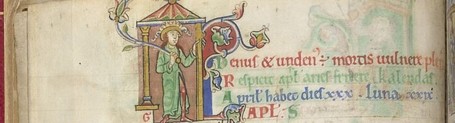 Denus & unden' ÷ mortis vulnere ple
Respicit apl' aries frixee kalendas.
April' habet dies xxx. Luna. xxix.
G APL'. S